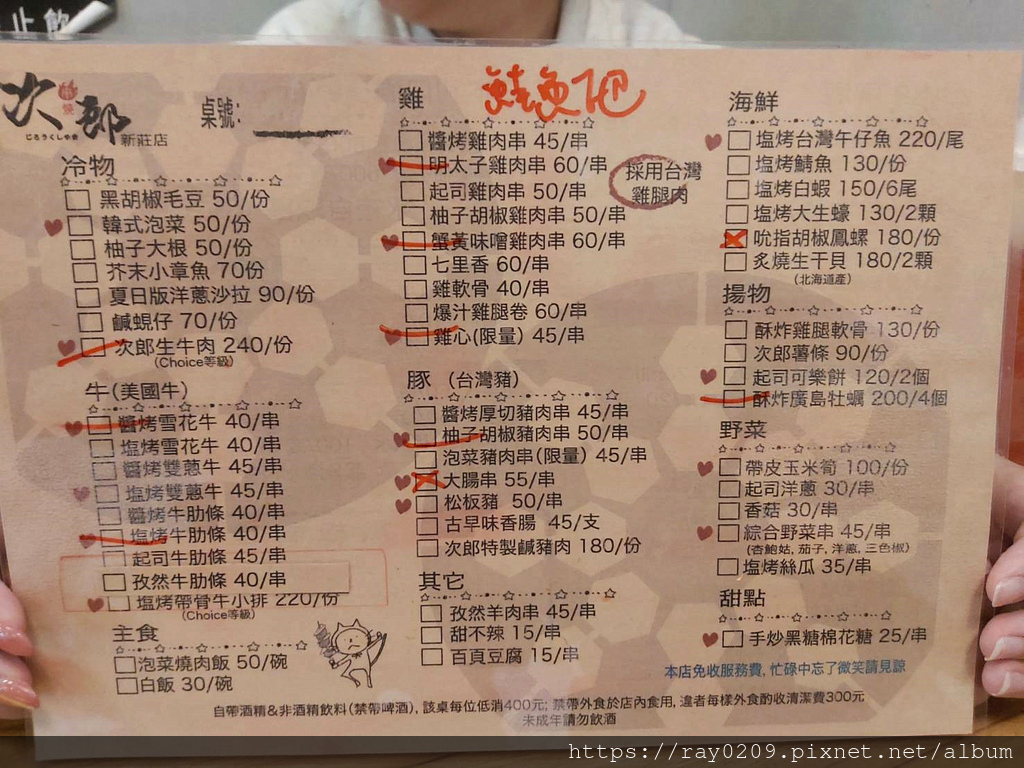 止飲
次郎
串燒
じろうくしやき
新莊店
桌號:
冷物
黑胡椒毛豆 50/份
韓式泡菜 50/份
柚子大根 50/份
芥末小章魚 70份
夏日版洋蔥沙拉 90/份
鹹蜆仔 70/份
次郎生牛肉 240/份
(Choice等級)
牛(美國牛)
醬烤雪花牛 40/串
塩烤雪花牛 40/串
醬烤雙蔥牛 45/串
塩烤雙蔥牛 45/串
醬烤牛肋條 40/串
塩烤牛肋條 40/串
起司牛肋條 45/串
孜然牛肋條 40/串
塩烤帶骨牛小排 220/份
(Choice等級)
主食
泡菜燒肉飯 50/碗
白飯 30/碗
雞
醬烤雞肉串 45/串
明太子雞肉串 60/串
起司雞肉串 50/串
柚子胡椒雞肉串 50/串
蟹黃味噌雞肉串 60/串
七里香 60/串
雞軟骨 40/串
爆汁雞腿卷 60/串
雞心(限量) 45/串
採用台灣
雞腿肉
豚 (台灣豬)
醬烤厚切豬肉串 45/串
柚子胡椒豬肉串 50/串
泡菜豬肉串(限量) 45/串
大腸串 55/串
松板豬 50/串
古早味香腸 45/支
次郎特製鹹豬肉 180/份
其它
孜然羊肉串 45/串
甜不辣 15/串
百頁豆腐 15/串
海鮮
塩烤台灣午仔魚 220/尾
塩烤鯖魚 130/份
塩烤白蝦 150/6尾
塩烤大生蠔 130/2顆
吮指胡椒鳳螺 180/份
炙燒生干貝 180/2顆
(北海道產)
揚物
酥炸雞腿軟骨 130/份
次郎薯條 90/份
起司可樂餅 120/2個
酥炸廣島牡蠣 200/4個
野菜
帶皮玉米筍 100/份
起司洋蔥 30/串
香菇 30/串
綜合野菜串 45/串
(杏鮑菇, 茄子, 洋蔥, 三色椒)
塩烤絲瓜 35/串
甜點
手炒黑糖棉花糖 25/串
本店免收服務費, 忙碌中忘了微笑請見諒
自帶酒精&非酒精飲料(禁帶啤酒), 該桌每位低消400元; 禁帶外食於店內食用, 違者每樣外食酌收清潔費300元
未成年請勿飲酒
https://ray0209.pixnet.net/album